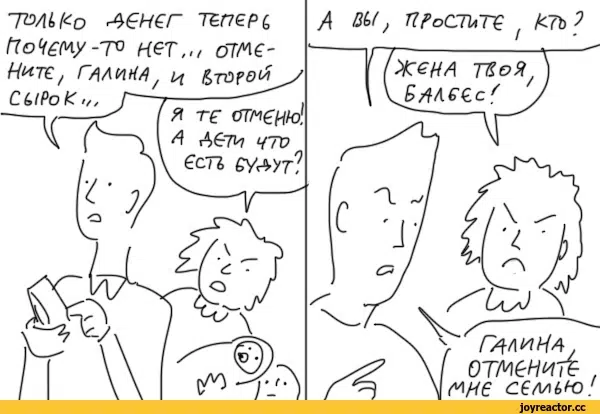 ТОЛЬКО ДЕНЕГ ТЕПЕРЬ
ПОЧЕМУ-ТО НЕТ... ОТМЕ-
НИТЕ, ГАЛИНА, И ВТОРОЙ
СЫРОК...
Я ТЕ ОТМЕНЮ!
А ДЕТИ ЧТО
ЕСТЬ БУДУТ?
А ВЫ, ПРОСТИТЕ, КТО?
ЖЕНА ТВОЯ,
БАЛБЕС!
ГАЛИНА,
ОТМЕНИТЕ
МНЕ СЕМЬЮ!
joyreactor.cc